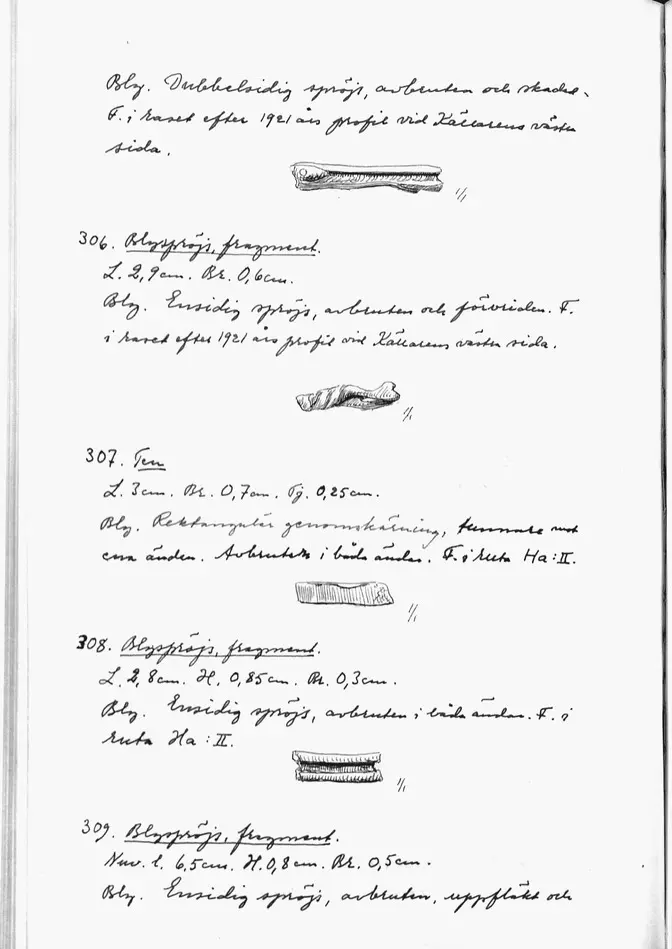 Bly. Dubbelsidig spröjs, avbruten och skadad.
F. i raset efter 1921 års profil vid Källarens västra
sida.
1/1
306. Blyspröjs, fragment.
L. 2,9 cm. Br. 0,6 cm.
Bly. Ensidig spröjs, avbruten och förvriden. F.
i raset efter 1921 års profil vid Källarens västra sida.
1/1
307. Ten
L. 3 cm. Br. 0,7 cm. Tj. 0,25 cm.
Bly. Rektangulär genomskärning, tunnare mot
ena änden. Avbruten i båda ändar. F. i ruta Ha:II.
1/1
308. Blyspröjs, fragment.
L. 2,8 cm. H. 0,85 cm. Br. 0,3 cm.
Bly. Ensidig spröjs, avbruten i båda ändar. F. i
ruta Ha:II.
1/1
309. Blyspröjs, fragment.
Nuv. l. 6,5 cm. H. 0,8 cm. Br. 0,5 cm.
Bly. Ensidig spröjs, avbruten, uppfläkt och